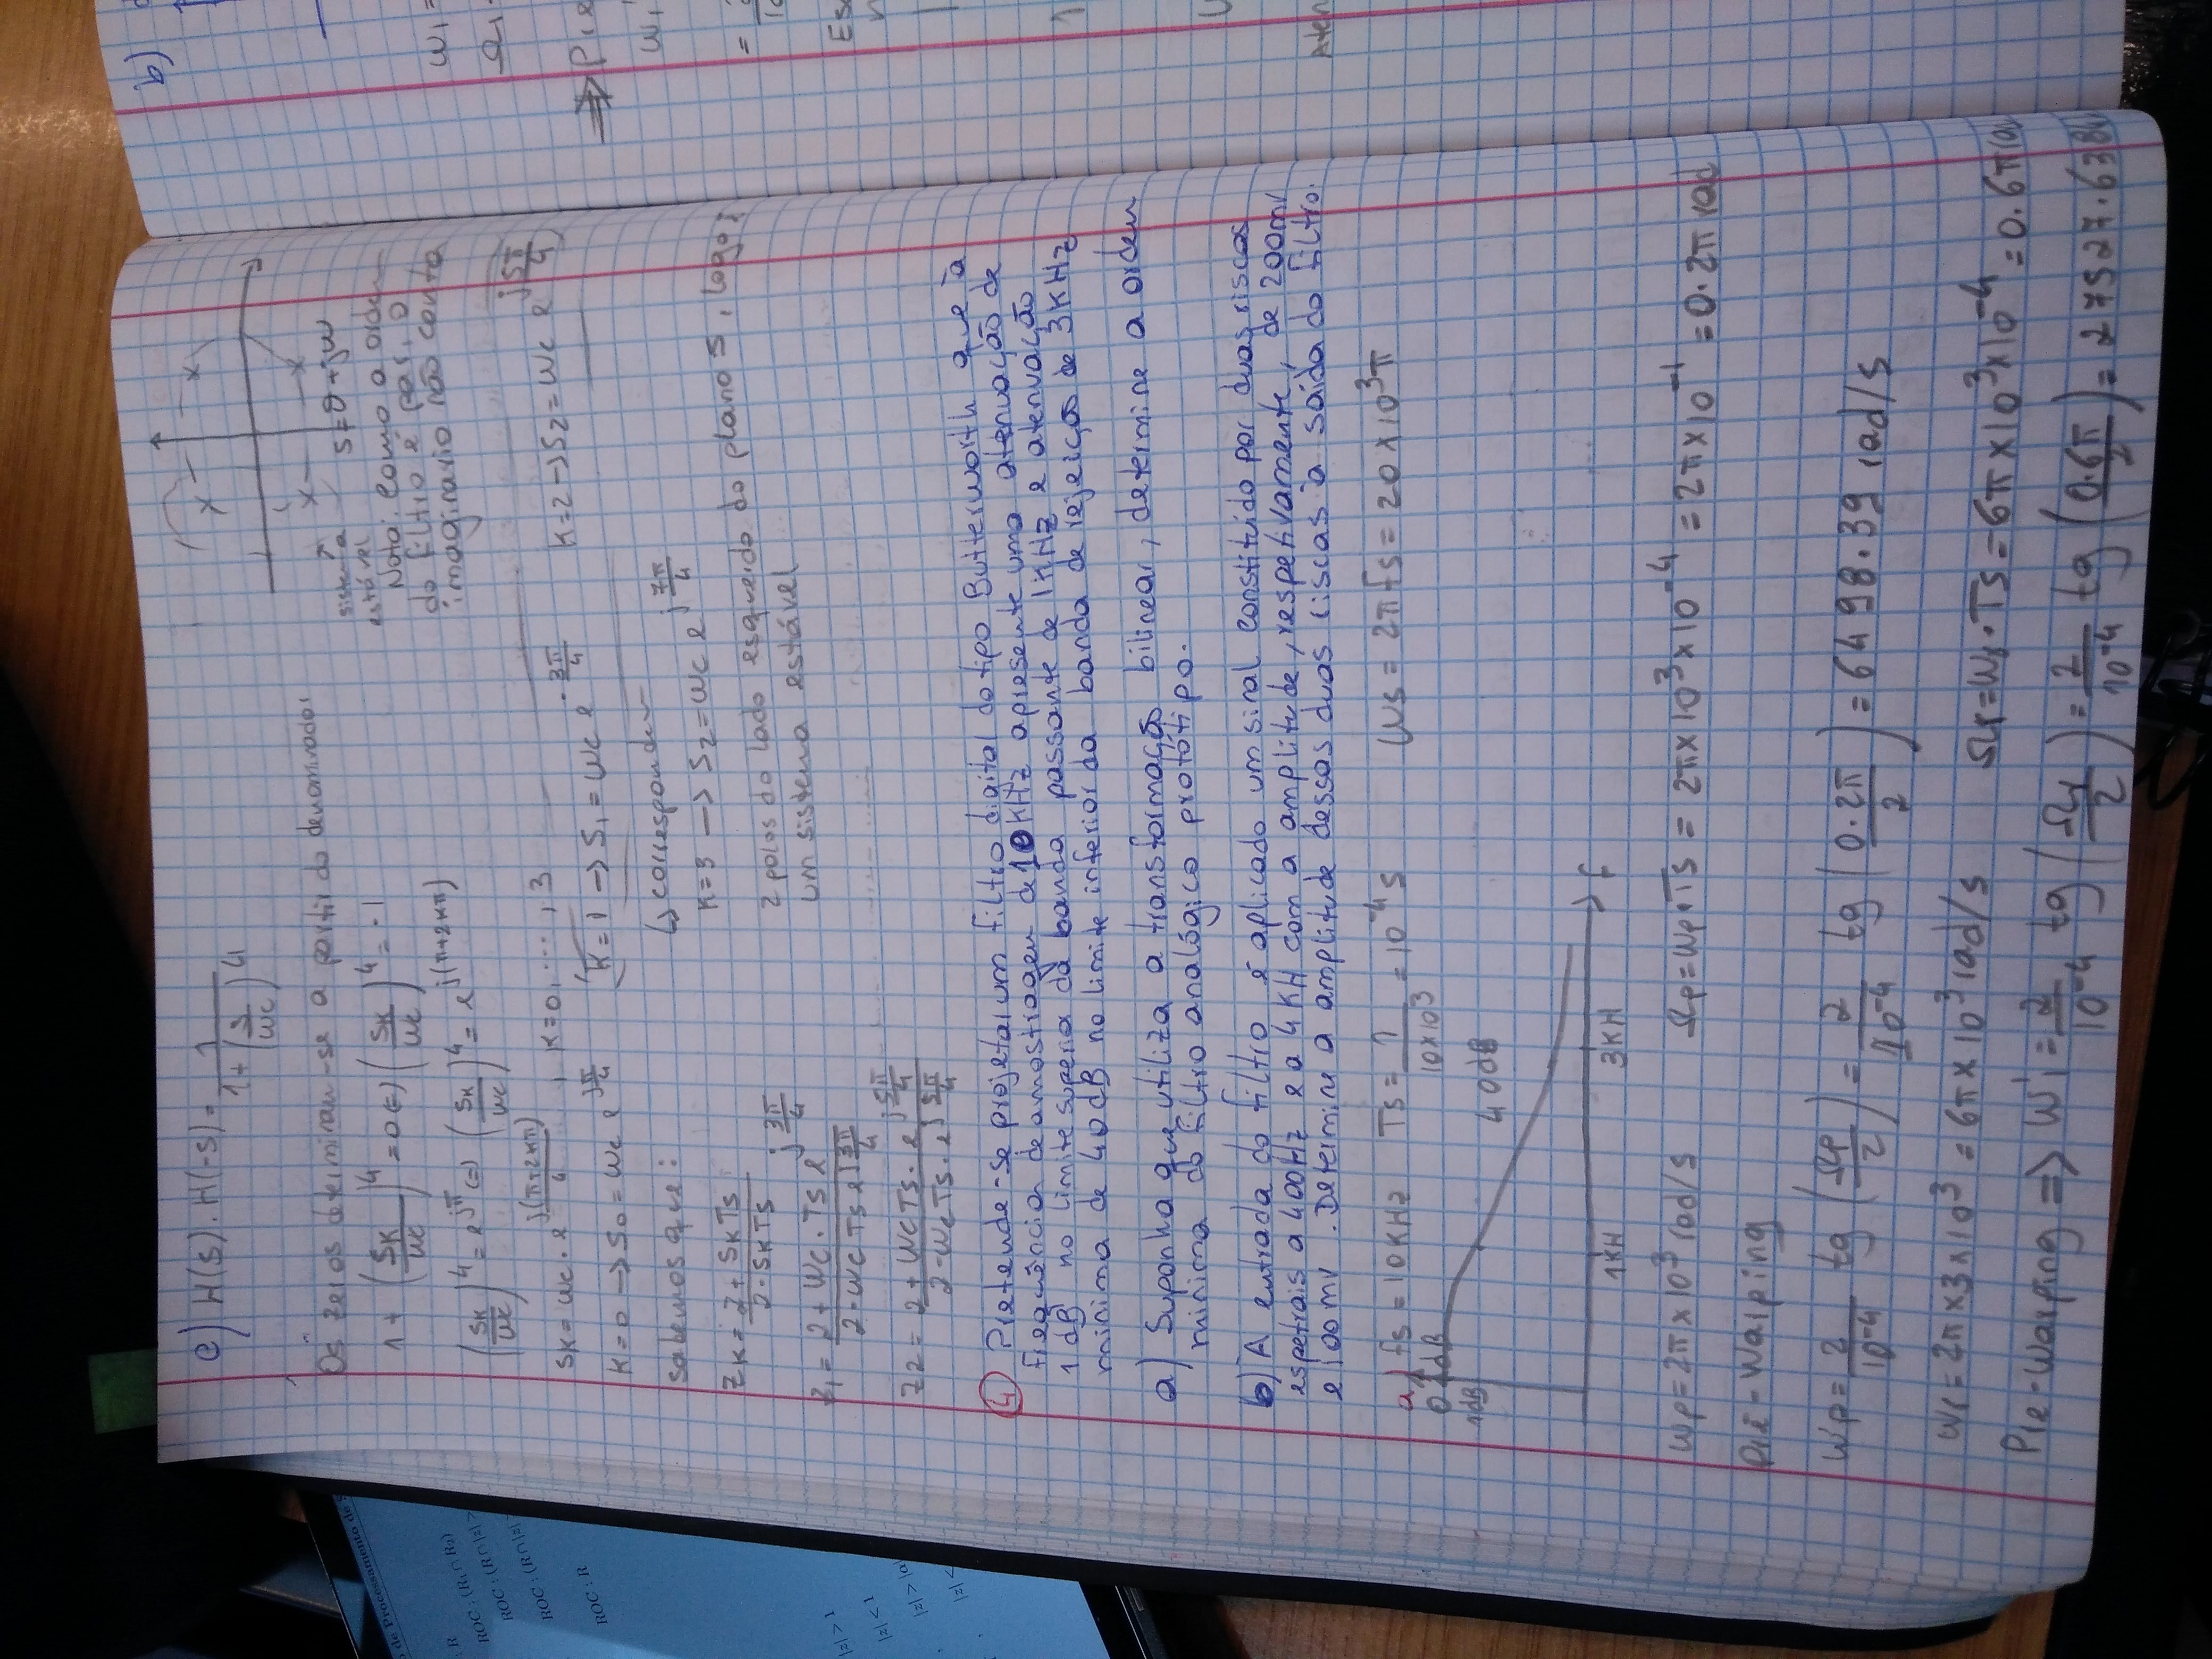 c) H(s) . H(-s) = 1 / (1 + (s/wc)^4)
Os zeros determinam-se a partir do denominador
1 + (sk/wc)^4 = 0 (=) (sk/wc)^4 = -1
(sk/wc)^4 = e^jπ (=) (sk/wc)^4 = e^j(π+2kπ)
sk = wc . e^(j(π+2kπ)/4) , k=0, ..., 3
k=0 → s0 = wc e^(jπ/4)
k=1 → s1 = wc e^(3π/4)
k=2 → s2 = wc e^(j5π/4)
↳ correspondem
k=3 → s2 = wc e^(j7π/4)
2 polos do lado esquerdo do plano s, logo é
um sistema estável
sistema
estável
s = σ + jw
Nota: como a ordem
do filtro é par, o
imaginario não conta
sabemos que:
zk = (2 + sk Ts) / (2 - sk Ts)
z1 = (2 + wc . Ts e^(j3π/4)) / (2 - wc Ts e^(j3π/4))
z2 = (2 + wc Ts . e^(j5π/4)) / (2 - wc Ts . e^(j5π/4))
4 Pretende-se projetar um filtro digital do tipo Butterworth que à
frequência de amostragem de 10KHz apresente uma atenuação de
1 dB no limite superior da banda passante de 1KHz e atenuação
minima de 40dB no limite inferior da banda de rejeição de 3KHz
a) Suponha que utiliza a transformação bilinear, determine a ordem
minima do filtro analógico protótipo.
b) A entrada do filtro é aplicado um sinal constituído por duas riscas
espetrais a 400Hz e a 4KH com a amplitude, respetivamente, de 200mv
e 100mv. Determine a amplitude dessas duas riscas à saída do filtro.
a) fs = 10KHz Ts = 1/(10x10^3) = 10^-4 s ws = 2πfs = 20x10^3π
0 dB
1dB
40dB
1KH 3KH f
wp = 2π x 10^3 rad/s Ωp = wp.Ts = 2πx10^3x10^-4 = 2πx10^-1 = 0.2π rad
Pré-Warping
w'p = 2/10^-4 tg (Ωp/2) = 2/10^-4 tg (0.2π/2) = 6498.39 rad/s
wr = 2π x 3 x 10^3 = 6π x 10^3 rad/s Ωr = wr.Ts = 6πx10^3x10^-4 = 0.6π rad
Pre-Warping => w'r = 2/10^-4 tg (Ωr/2) = 2/10^-4 tg (0.6π/2) = 27527.638
o de Processamento de S
: R
ROC : (R1 ∩ R2)
ROC : (R ∩ |z| >
ROC : (R ∩ |z| >
ROC : R
|z| > 1
|z| < 1
|z| > |a|
|z| <
b)
w1 =
Ω1
=> Pre
w1'
Aten